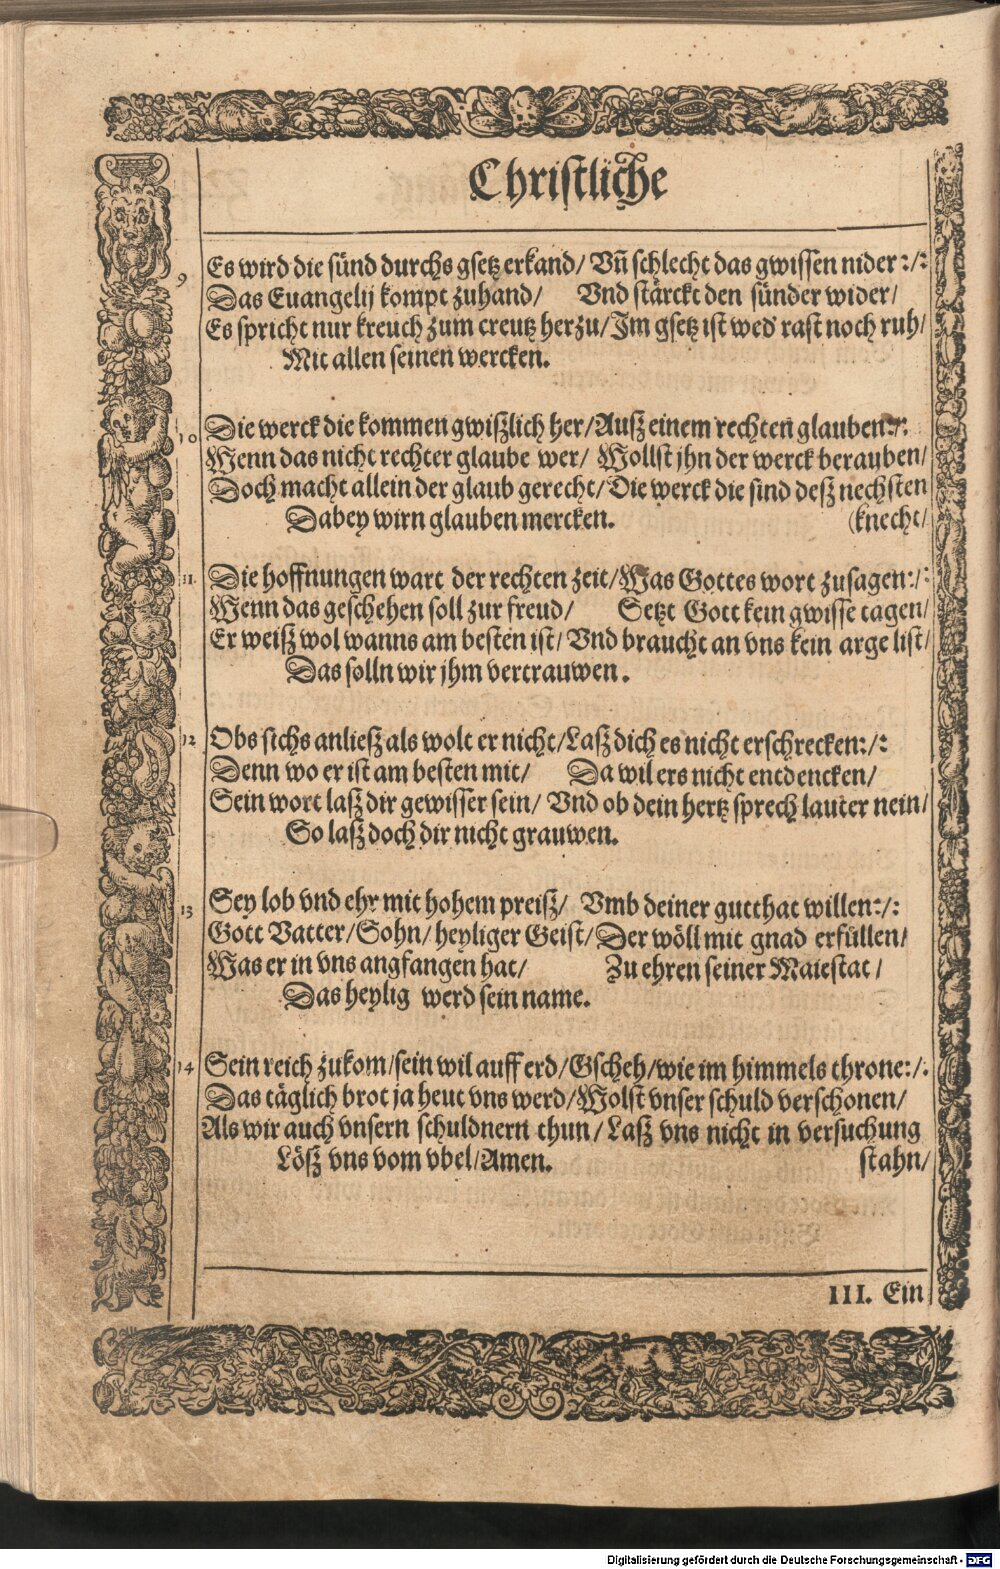 Christliche
9 Es wird die sünd durchs gsetz erkand/ Vñ schlecht das gwissen nider:/:
Das Euangelij kompt zuhand/ Vnd stärckt den sünder wider/
Es spricht nur kreuch zum creutz herzu/ Im gsetz ist wed' rast noch ruh/
Mit allen seinen wercken.
10 Die werck die kommen gwißlich her/ Auß einem rechten glauben:/:
Wenn das nicht rechter glaube wer/ Wollst jhn der werck berauben/
Doch macht allein der glaub gerecht/ Die werck die sind deß nechsten
Dabey wirn glauben mercken. (knecht/
11. Die hoffnungen wart der rechten zeit/ Was Gottes wort zusagen:/:
Wenn das geschehen soll zur freud/ Setzt Gott kein gwisse tagen/
Er weiß wol wanns am besten ist/ Vnd braucht an vns kein arge list/
Das solln wir jhm vertrauwen.
12 Obs sichs anließ als wolt er nicht/ Laß dich es nicht erschrecken:/:
Denn wo er ist am besten mit/ Da wil ers nicht entdencken/
Sein wort laß dir gewisser sein/ Vnd ob dein hertz sprech lauter nein/
So laß doch dir nicht grauwen.
13 Sey lob vnd ehr mit hohem preiß/ Vmb deiner gutthat willen:/:
Gott Vatter/ Sohn/ heyliger Geist/ Der wöll mit gnad erfüllen/
Was er in vns angfangen hat/ Zu ehren seiner Maiestat/
Das heylig werd sein name.
14 Sein reich zukom/ sein wil auff erd/ Gscheh/ wie im himmels throne:/:
Das täglich brot ja heut vns werd/ Wolst vnser schuld verschonen/
Als wir auch vnsern schuldnern thun/ Laß vns nicht in versuchung
Löß vns vom vbel/ Amen. stahn/
III. Ein
Digitalisierung gefördert durch die Deutsche Forschungsgemeinschaft - DFG